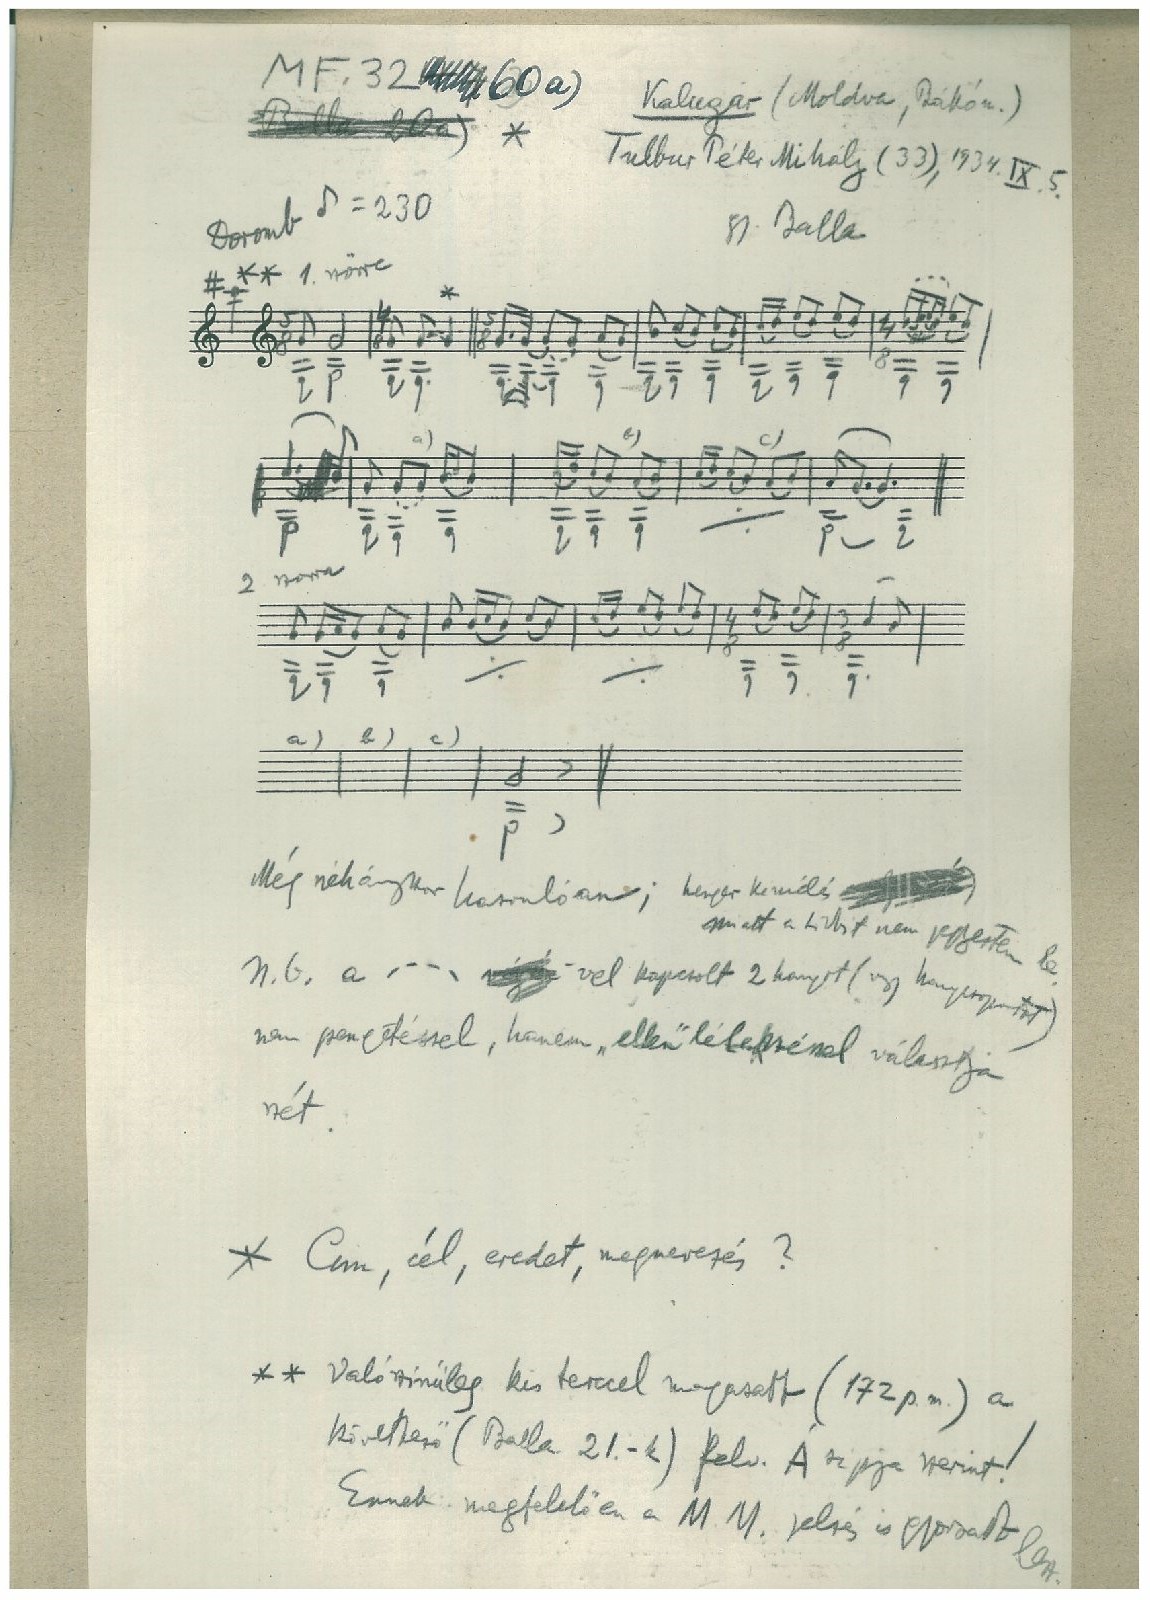 MF. 32 60a)
Balla 20a) *
Kalugar (Moldva, Bákóm.)
Tulbur Péter Mihály (33), 1934. IX. 5.
gy. Balla
Doromb ♪ = 230
** 1. szörre
*
5/8 4/8 5/8 4/8
a) b) c)
2 szörra
4/8 3/8
a) b) c)
Még néhányszor hasonlóan; henger
miatt a többit nem jegyeztem le.
N.B. a -vel kapcsolt 2 hangot (vagy hangcsoportot)
nem pengetéssel, hanem „ellen" lélekzéssel választja
szét.
* Cím, cél, eredet, megnevezés?
** Valószínűleg kis terccel magasabb (172 p.m.) a
következő (Balla 21.-k) felv. Á sípja szerint!
Ennek megfelelően a M.M. jelzés is gyorsabb lesz.